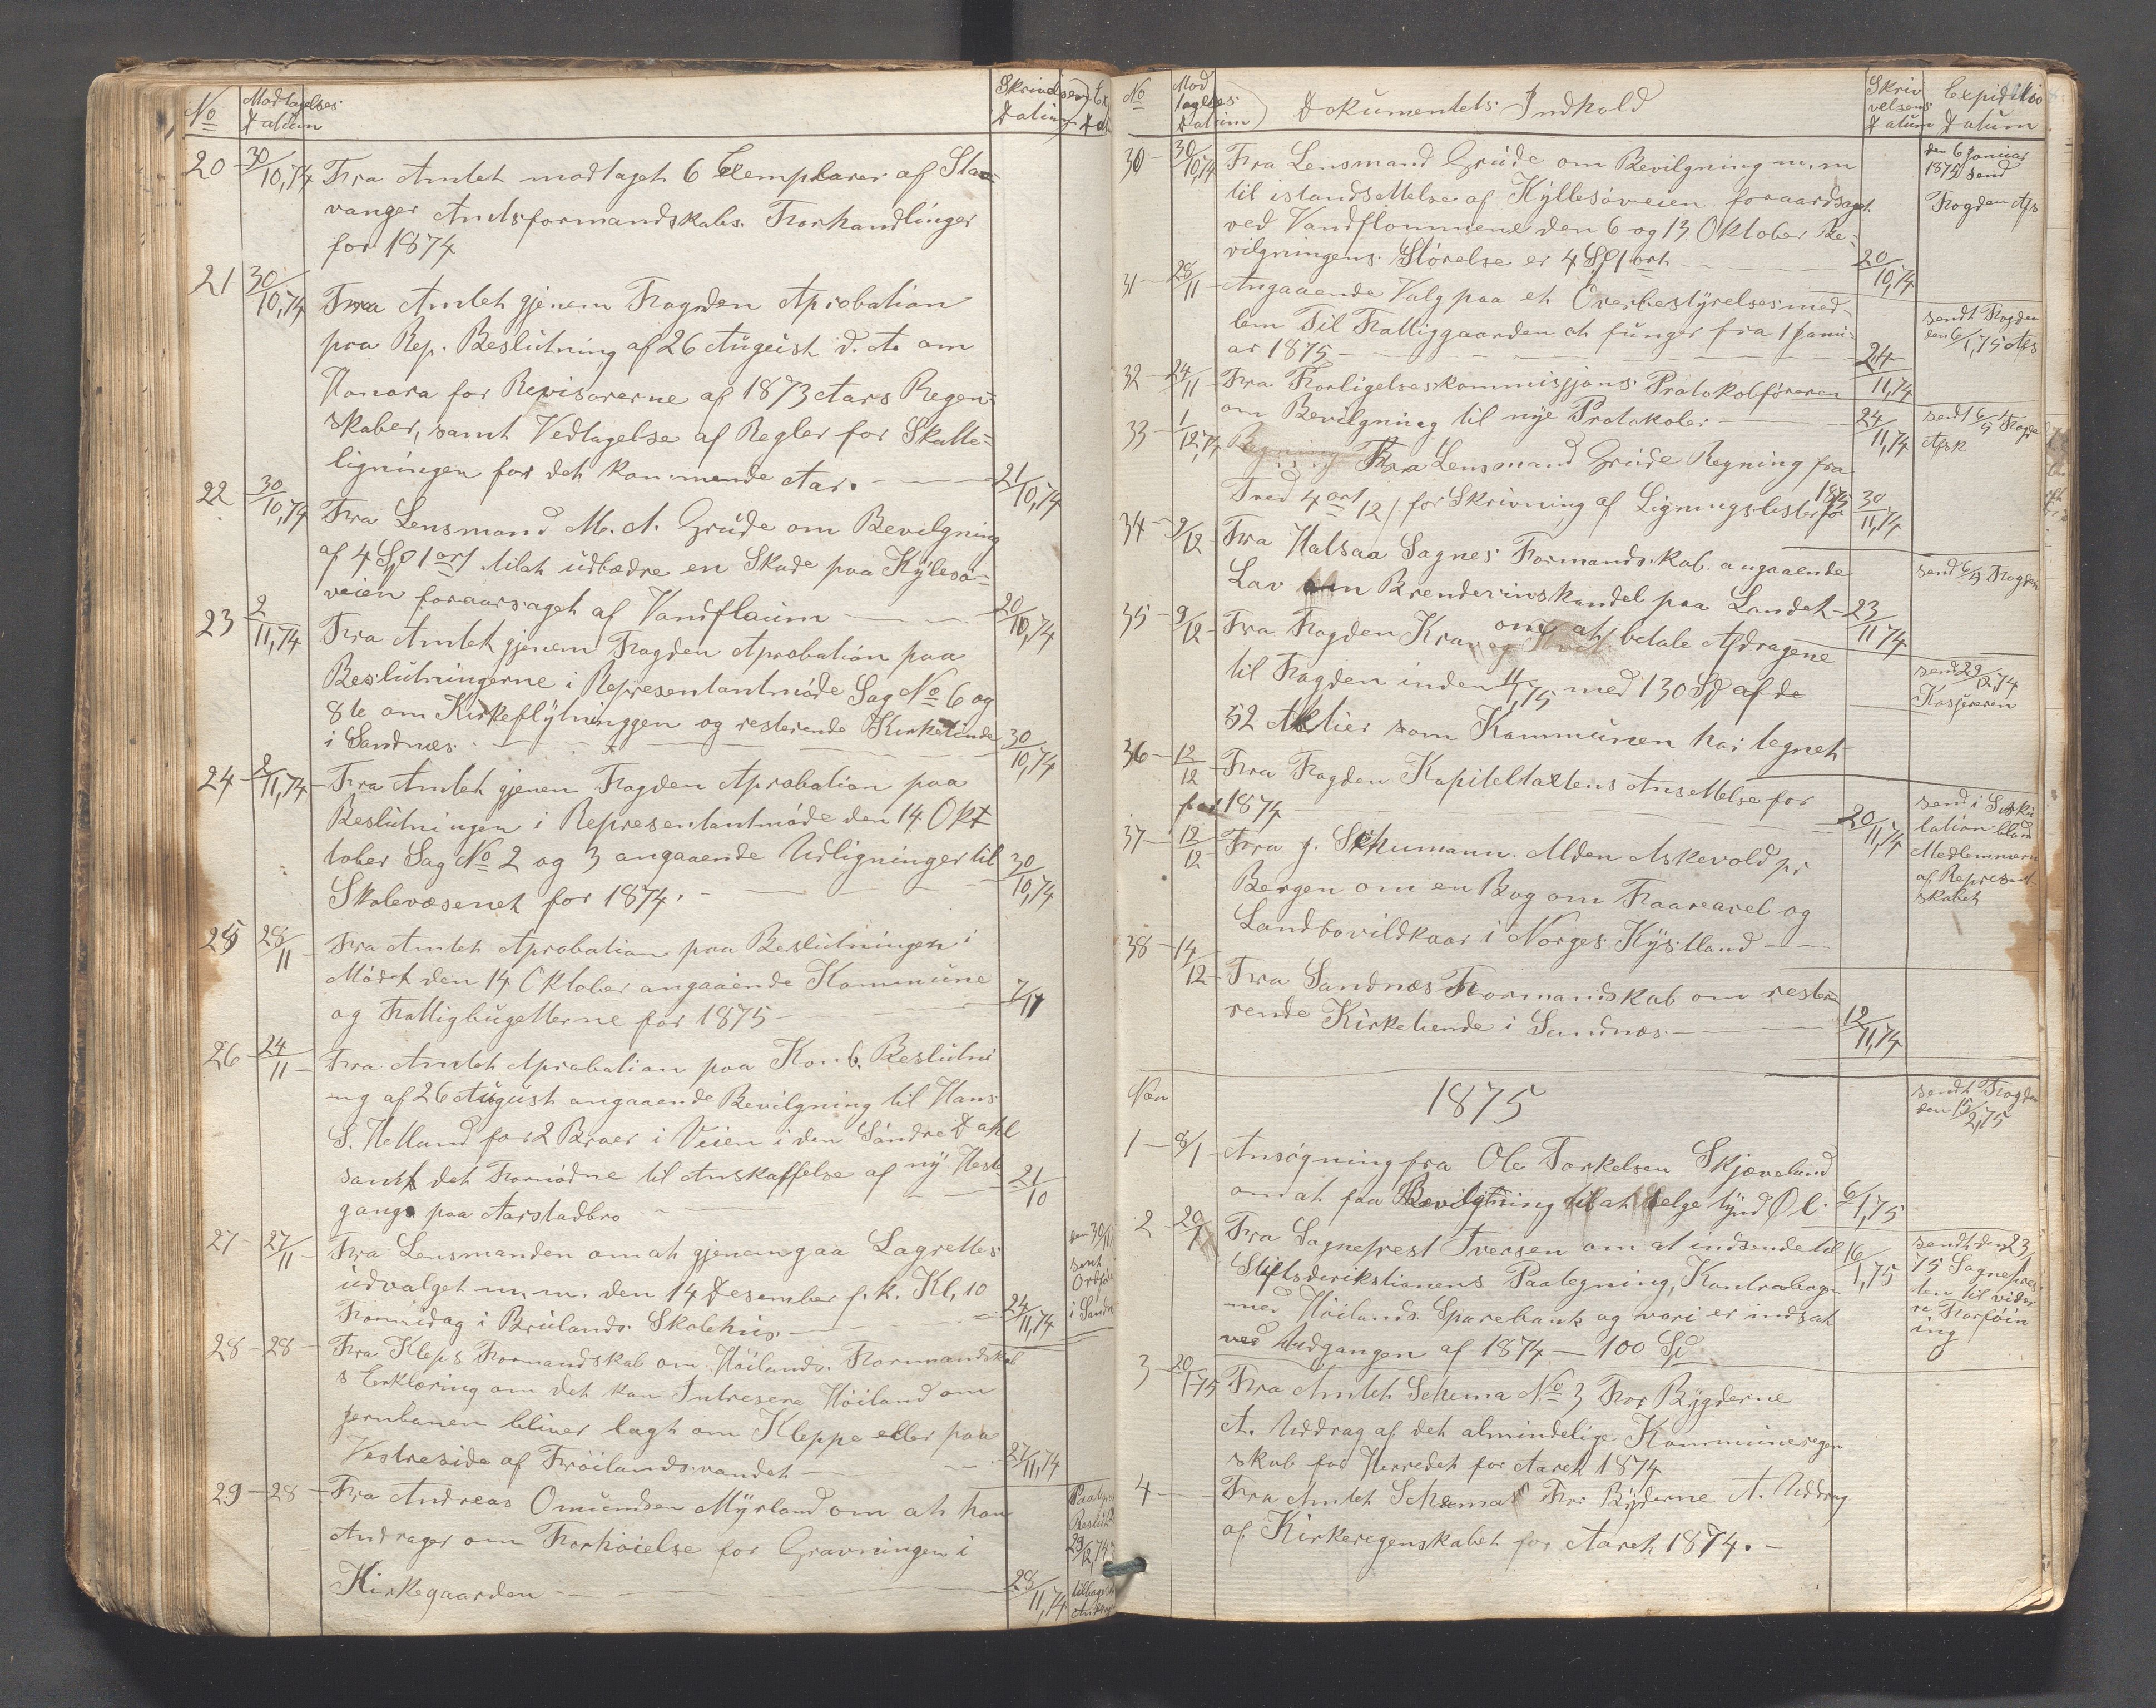 No
Modtagelses
Datum
Skrivelsens
Datum
20 30/10,74 Fra Amtet modtaget 6 Exemplarer af Sta-
vanger Amtsformandskabs Forhandlinger
for 1874
21 30/10,74 Fra Amtet gjenem Fogden Aprobation
paa Rep. Beslutning af 26 August d. A. om
Honora for Revisorerne af 1873 Aars Regen-
skaber, samt Vedtagelse af Regler for Skatte-
ligningen for det kommende Aar. 21/10,74
22 30/10,74 Fra Lensmand M. A. Grude om Bevilgning
af 4 Sp 1 ort tilat udbædre en Skade paa Kÿlesø-
veien foraarsaget af Vandflaum 20/10,74
23 2/11,74 Fra Amtet gjenem Fogden Aprobation paa
Beslutningerne i Representantmøde Sag No 6 og
8te om Kirkeflÿtninggen og resterende Kirketinde
i Sandnæs 30/10,74
24 2/11,74 Fra Amtet gjenem Fogden Aprobation paa
Beslutningen i Representantmøde den 14 Okt
tober Sag No 2 og 3 angaaende Udligninger til
Skolevæsenet for 1874. 30/10,74
25 28/11 Fra Amtet Aprobation paa Beslutningen i
Mødet den 14 Oktober angaaende Kommune
og Fattigbugetterne for 1875 7/11
26 24/11 Fra Amtet Aprobation paa Kom. Beslutni
ng af 26 August angaaende Bevilgning til Hans
S. Helland for 2 Broer i Veien i den Søndre Dahl
samt det Fornødne til Anskaffelse af nÿ Heste
gang paa Aarstadbro 21/10
27 27/11 Fra Lensmanden om at gjenemgaa Lagrettes
udvalget m.m. den 14 Desember f. k. Kl, 10
Formidag i Brulands Skolehus 24/11,74
den 30/11
sent
i Sandn
28 28 Fra Kleps Formandskab om Høilands Formandskab
s Erklæring om det kan Intresere Høiland om
jernbanen bliver lagt om Kleppe eller paa
Vestreside af Frøilandsvandet 27/11,74
29 28 Fra Andreas Omundsen Mÿrland om at han
Andrager om Forhøielse for Gravningen i
Kirkegaarden 28/11,74
29/12,74
No
Mod
tagelses
Datum
Dokumentets Indhold
Skriv
velsens
Datum
Expiditio
Datum
30 30/10,74 Fra Lensmand Grude om Bevilgning m.m
til istandsettelse af Kÿllesøveien foraardsaget
ved Vandflommene den 6 og 13 Oktober Be-
vilgningens Størelse er 4 Sp 1 ort 20/10,74
den 6 Januar
1875 send
Fogden Afs
31 28/11 Angaaende Valg paa et Overbestÿrelsesmed-
lem Til Fattiggaarden at funger fra 1 Janu-
ar 1875 24/11,74
sendt Fogden
den 6/1,75 Afs
32 24/11 Fra Forligelseskommisjons Protokolføreren
om Bevilgning til nÿe Protokoler 24/11,74
sendt 6/1 Fogde
Afsk
33 1/12,74 Regning Fra Lensmand Grude Regning fra
Tved 4 ort 12 / for Skrivning af Ligningslister for 1875 30/11,74
34 9/12 Fra Halsaa Sognes Formandskab angaaende
Lov om Brendevinshandel paa Landet 23/11 74
send 6/1 Fogden
35 9/12 Fra Fogden Krav om at betale Afdragene
til Fogden inden 11/1,75 med 130 Sp af de
52 Aktier som Kommunen har tegnet
send 29/12,74
Kasjereren
36 12/12 Fra Fogden Kapiteltaxtens Ansettelse for
for 1874 20/11,74
send i Sirku
lation bland
Medlemmerne
af Represent
skabet
37 12/12 Fra J. Schumann Alden Askevold pr
Bergen om en Bog om Faareavel og
Landbovildkaar i Norges Kÿstland
38 14/12 Fra Sandnæs Formandskab om reste-
rende Kirketiende i Sandnæs 12/11,74
1875
sendt Fogden
den 15/2,75
1 8/1 Ansøgning fra Ole Torkelsen Skjæveland
om at faa Bevilgning til at selge tÿnd Øl. 6/1,75
2 20/1 Fra Sogneprest Iversen om at indsende til
Stiftsderikstionens Paategning, Kontrabogen
med Høilands Sparebank og vori er indsat
ved Udgangen af 1874 — 100 Sp 16/1,75
sendt den 23/1
75 Sognepres
ten til vider
re Forføin
ing
3 20/1 75 Fra Amtet Schema No 3 For Bÿgderne
A. Uddrag af det almindelige Kommuneregen
skab for Herredet for Aaret 1874
4 Fra Amtet Schema For Bÿderne A. Uddrag
af Kirkeregenskabet for Aaret 1874.